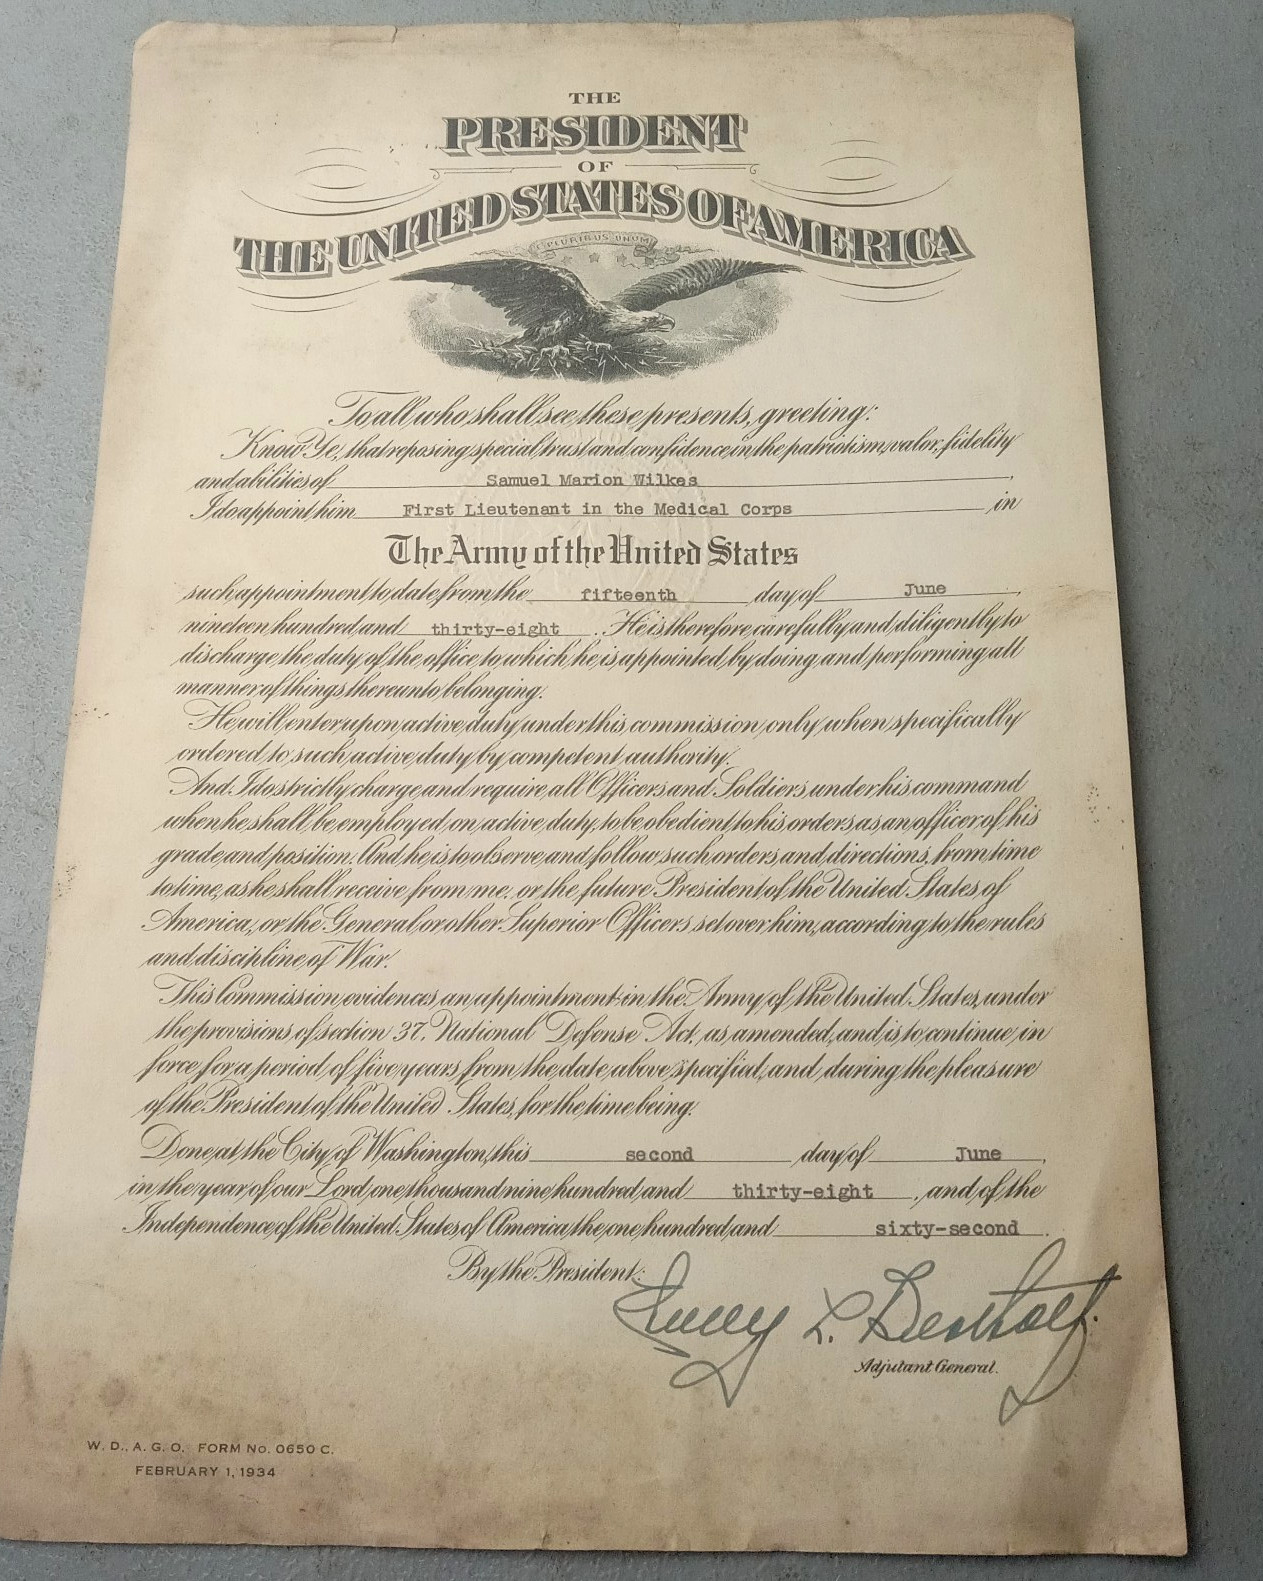 THE
PRESIDENT
OF
THE UNITED STATES OF AMERICA
E PLURIBUS UNUM
To all who shall see these presents, greeting:
Know Ye, that reposing special trust and confidence in the patriotism, valor, fidelity
and abilities of Samuel Marion Wilkes,
I do appoint him First Lieutenant in the Medical Corps in
The Army of the United States
such appointment to date from the fifteenth day of June,
nineteen hundred and thirty-eight. He is therefore carefully and diligently to
discharge the duty of the office to which he is appointed by doing and performing all
manner of things thereunto belonging.
He will enter upon active duty under this commission only when specifically
ordered to such active duty by competent authority.
And I do strictly charge and require all Officers and Soldiers under his command
when he shall be employed on active duty to be obedient to his orders as an officer of his
grade and position. And he is to observe and follow such orders and directions, from time
to time, as he shall receive from me, or the future President of the United States of
America, or the General or other Superior Officers set over him, according to the rules
and discipline of War.
This Commission evidences an appointment in the Army of the United States, under
the provisions of section 37, National Defense Act, as amended, and is to continue in
force for a period of five years from the date above specified, and during the pleasure
of the President of the United States, for the time being.
Done at the City of Washington, this second day of June,
in the year of our Lord one thousand nine hundred and thirty-eight, and of the
Independence of the United States of America the one hundred and sixty-second.
By the President:
L.
Adjutant General.
W. D., A. G. O. FORM No. 0650 C.
FEBRUARY 1, 1934